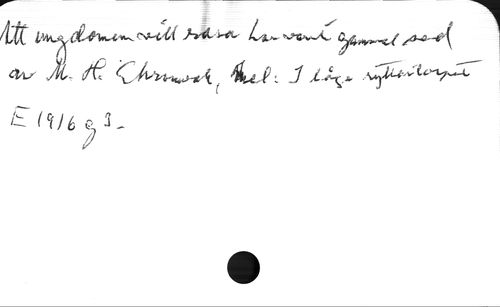 Att ungdomen vill rasa har varit gammal sed
av M. H. Ehrnwal, Mel: I låga ryttartorpet
E 1916 g 3.